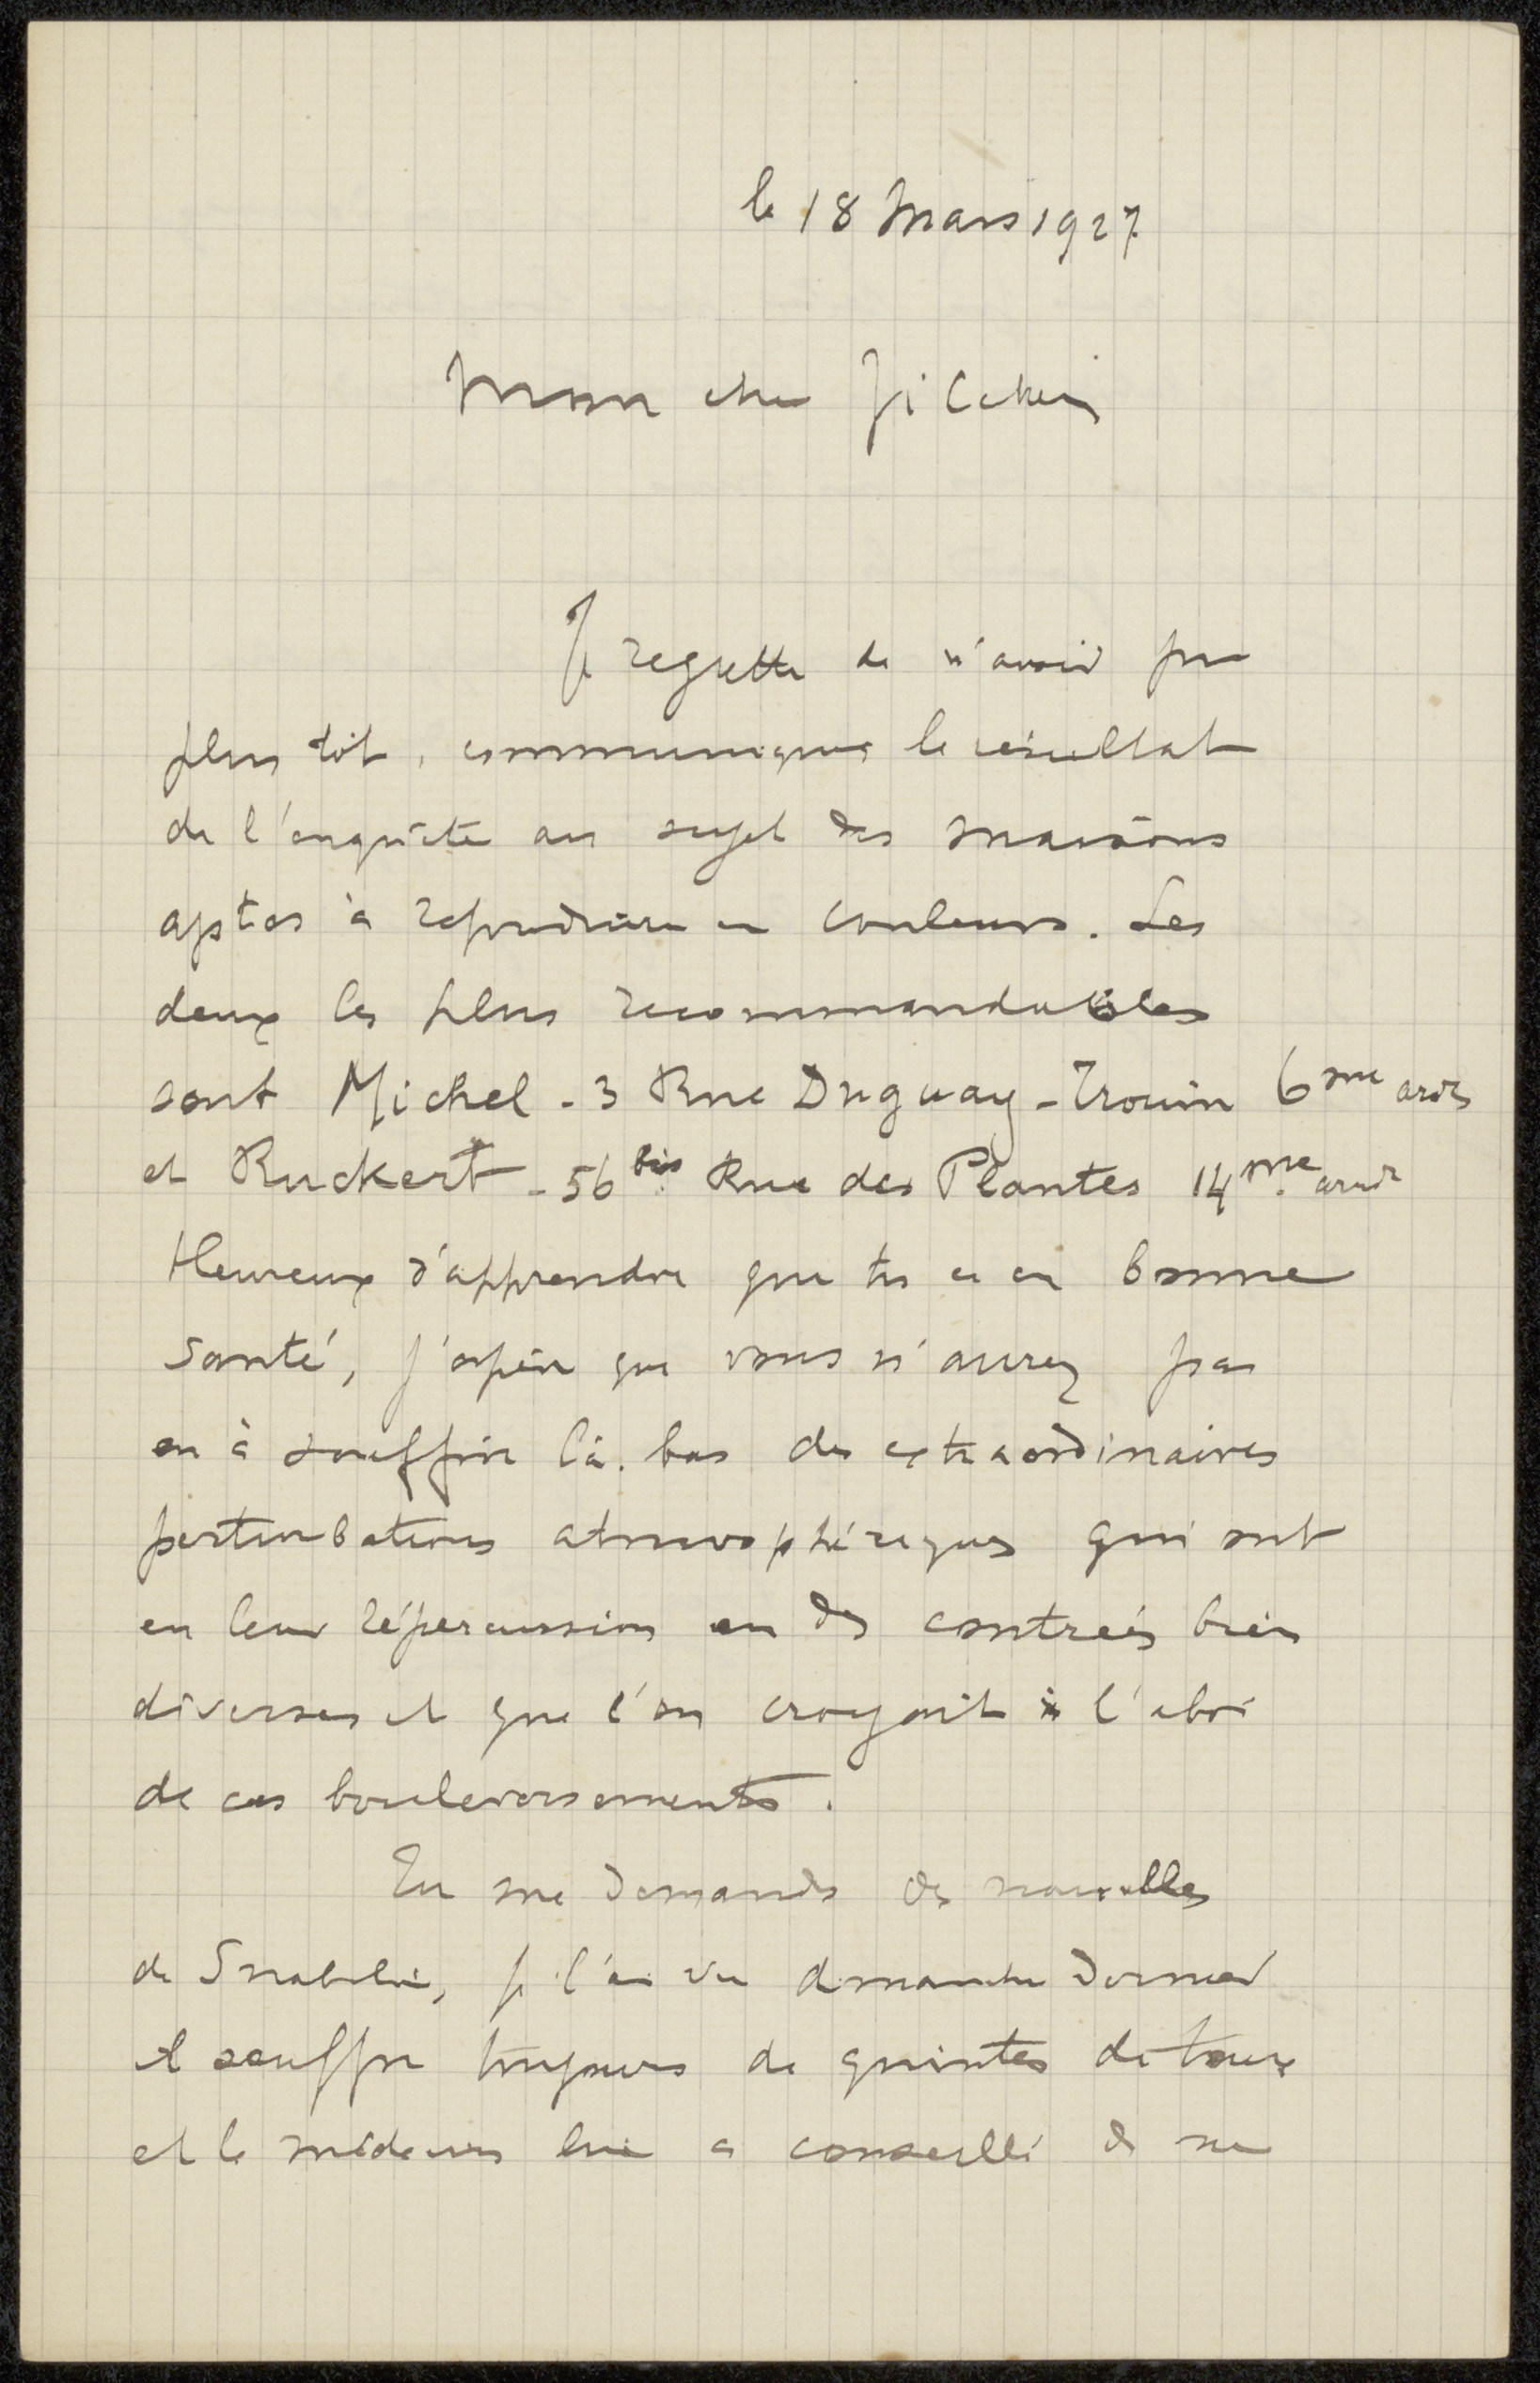 le 18 Mars 1927
Mon cher Zilcken
Je regrette de n'avoir pu
plus tôt, communiquer le résultat
de l'enquête au sujet des maisons
aptes à reproduire en couleurs. Les
deux les plus recommandables
sont Michel - 3 Rue Duguay-Trouin 6me ardt
et Ruckert - 56 bis Rue des Plantes 14me arrdt
Heureux d'apprendre que tu es en bonne
santé, j'espère que vous n'aurez pas
eu à souffrir là-bas des extraordinaires
perturbations atmosphériques qui ont
eu leur répercussion en des contrées bien
diverses et que l'on croyait à l'abri
de ces bouleversements.
Tu me demandes des nouvelles
de Snabilié, je l'ai vu dimanche dernier
il souffre toujours de quintes de toux
et le médecin lui a conseillé de ne